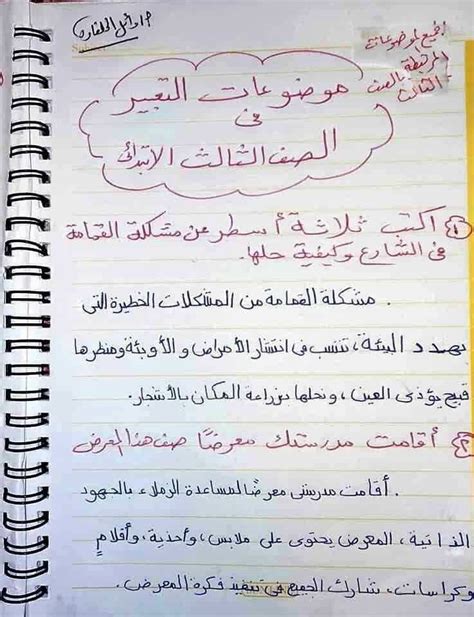 لجميع الموضوعات
المرتبطة بالصف
الثالث
موضوعات التعبير
فى
الصف الثالث الابتدائى
١ اكتب ثلاثة أسطر عن مشكلة القمامة
فى الشارع وكيفية حلها.
. مشكلة القمامة من المشكلات الخطيرة التى
تهدد البيئة، تتسبب فى انتشار الأمراض والأوبئة ومنظرها
قبيح يؤذى العين، ونحلها بزراعة المكان بالأشجار.
٢ أقامت مدرستك معرضًا صف هذا المعرض
. أقامت مدرستى معرضًا لمساعدة الزملاء بالجهود
الذاتية، المعرض يحتوى على ملابس، وأحذية، وأقلامٍ
وكراسات، شارك الجميع فى تنفيذ فكرة المعرض.